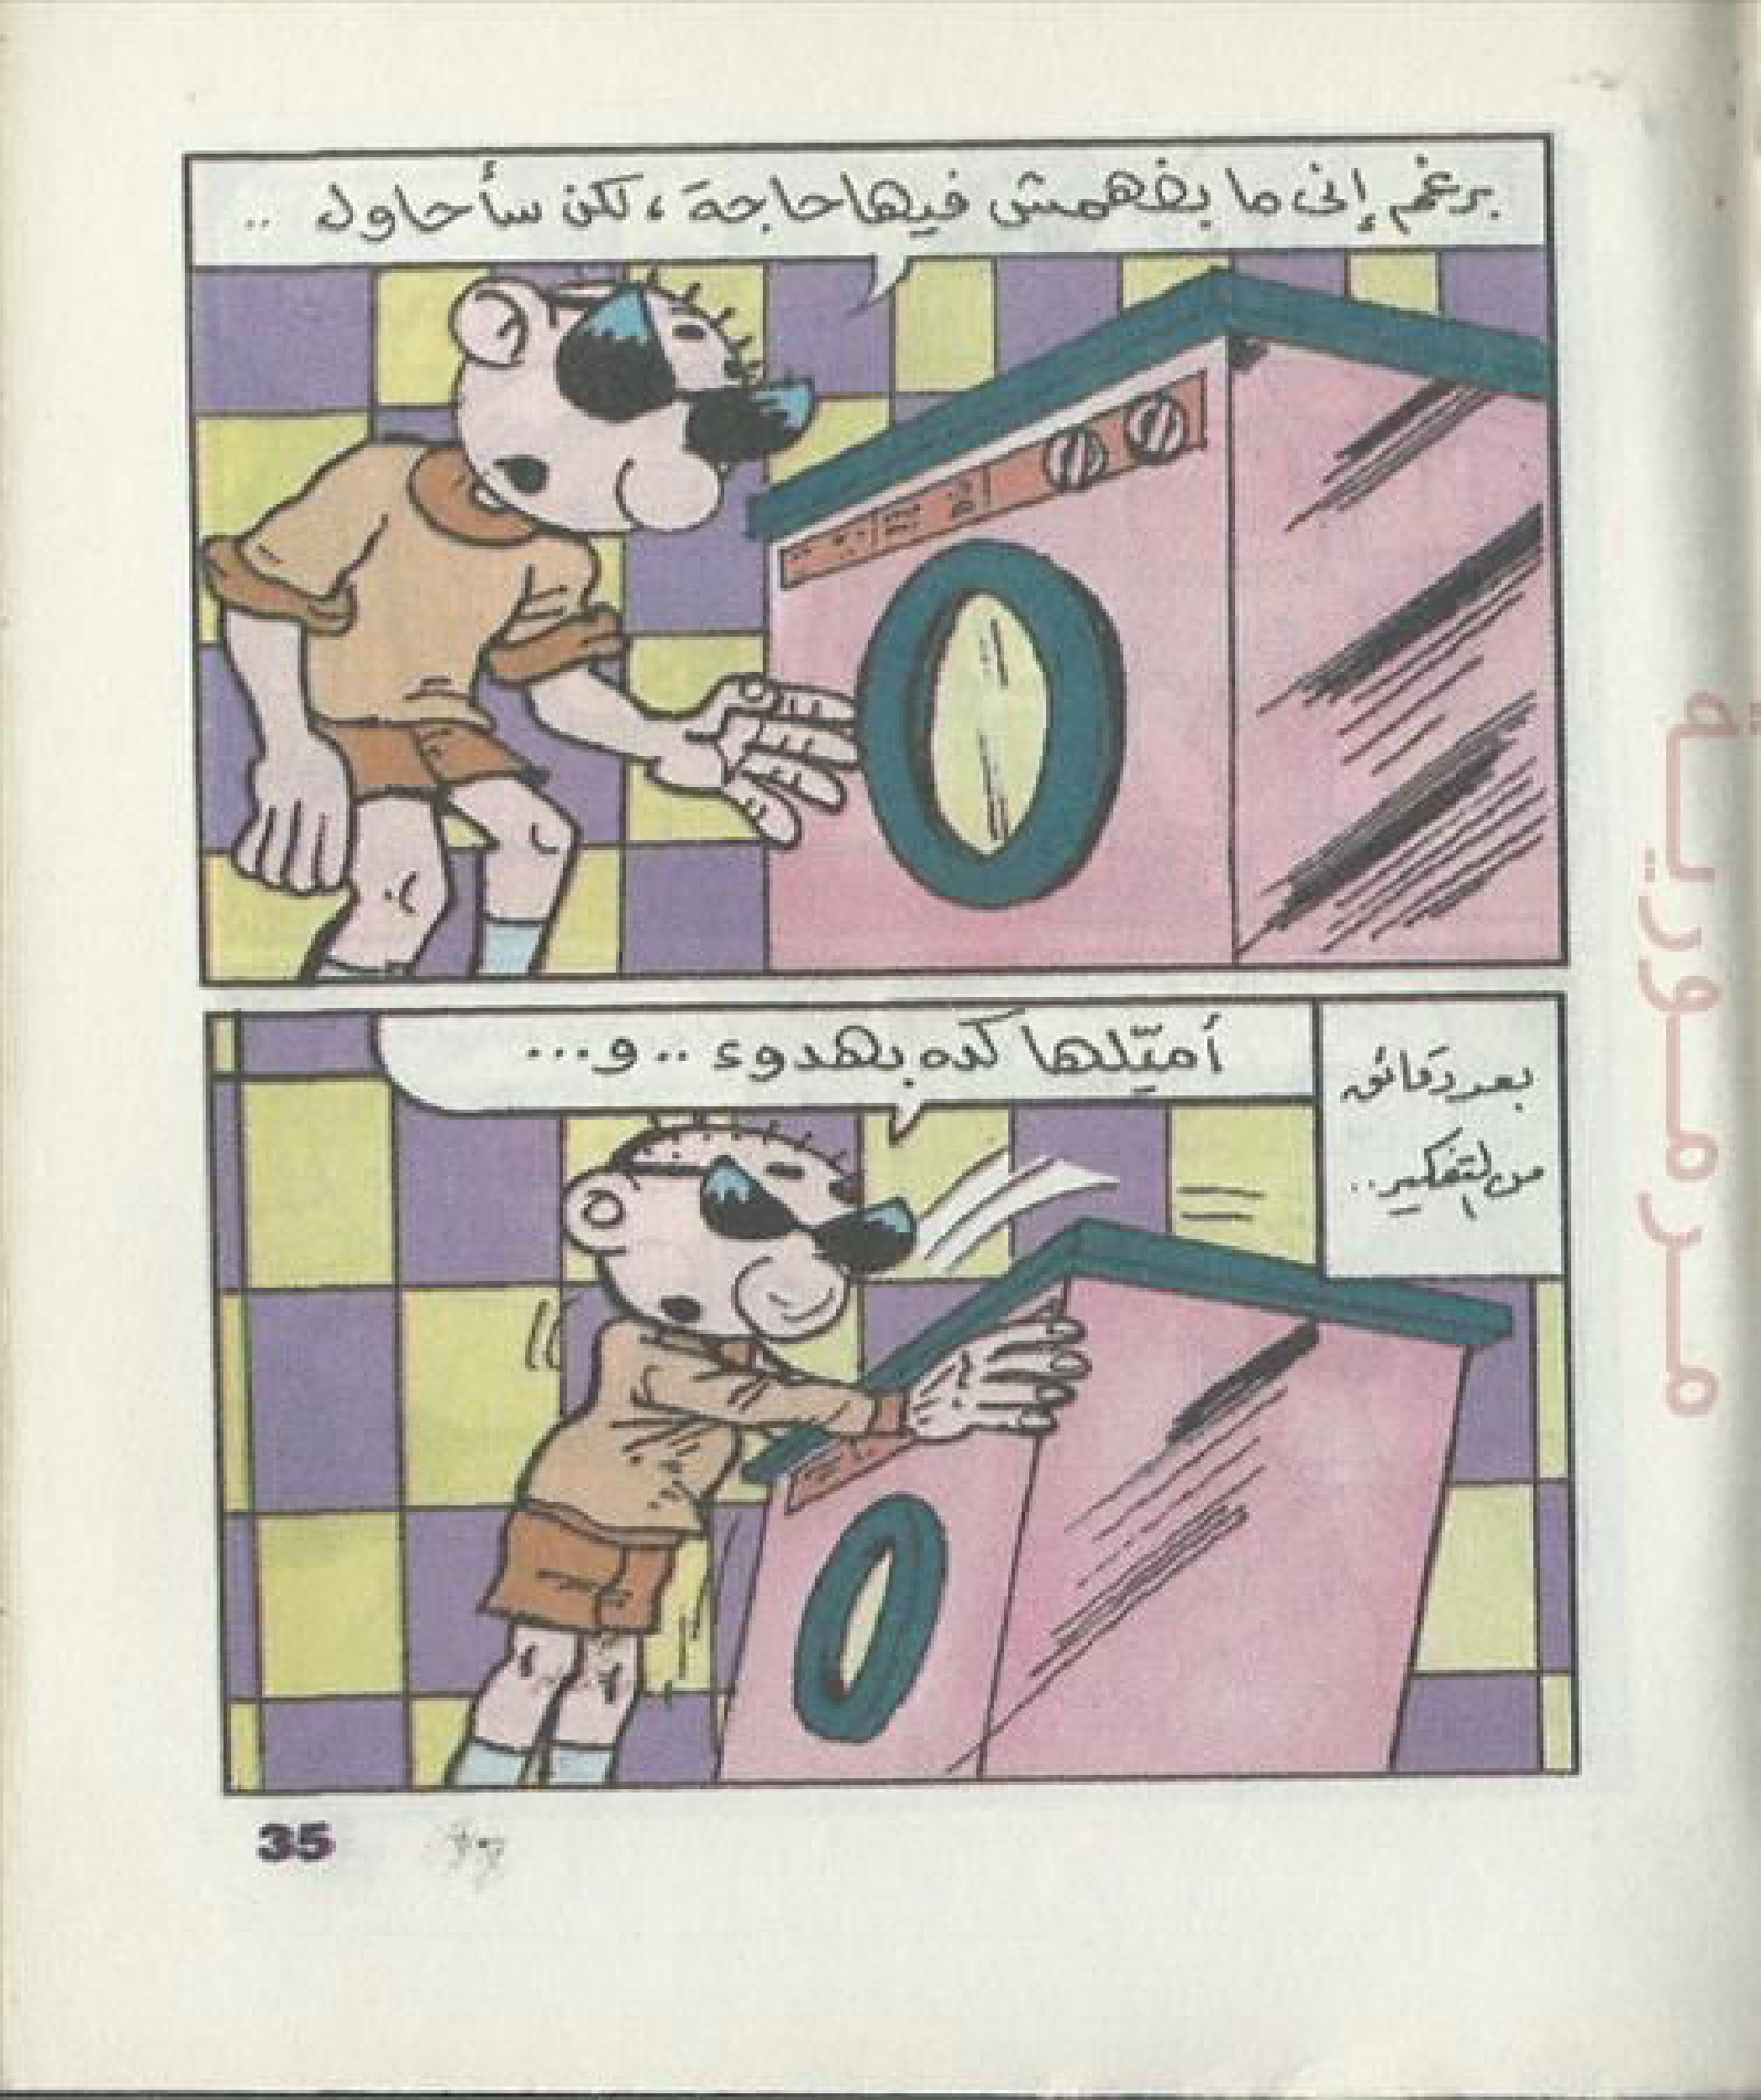 برغم إنى ما بفهمش فيها حاجة، لكن سأحاول ..
بعد دقائق
من التفكير..
أميّلها كده بهدوء .. و...
35
مرمورية